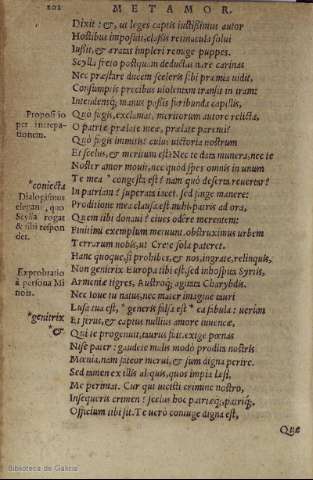 202 METAMOR.
Dixit: &, ut leges captis iustissimus autor
Hostibus imposuit, classis retinacula solui
Iussit, & æratas impleri remige puppes.
Scylla freto postquam deductas nare carinas
Nec præstare ducem sceleris sibi præmia uidit,
Consumptis precibus uiolentam transit in iram:
Intendensq; manus passis furibunda capillis,
Quò fugis, exclamat, meritorum autore relicta,
O patriæ prælate meæ, prælate parenti?
Quò fugis immitis? cuius uictoria nostrum
Et scelus, & meritum est? Nec te data munera, nec te
Noster amor mouit, nec quòd spes omnis in unum
Te mea * congesta est? nam quò deserta reuertar?
In patriam? superata iacet. sed finge manere:
Proditione mea clausa est mihi. patris ad ora,
Quem tibi donaui? ciues odêre merentem:
Finitimi exemplum metuunt. obstruximus urbem
Terrarum nobis, ut Crete sola pateret.
Hanc quoque, si prohibes, & nos, ingrate, relinquis,
Non genitrix Europa tibi est, sed inhospita Syrtis,
Armeniæ tigres, Austroq; agitata Charybdis.
Nec Ioue tu natus, nec mater imagine tauri
Lusa tua est, * generis falsa est * ea fabula: uerûm
Et ferus, & captus nullius amore iuuencæ,
Qui te progenuit, taurus fuit. exige pœnas
Nise pater: gaudete malis modò prodita nostris
Mœnia, nam fateor merui, & sum digna perire.
Sed tamen ex illis aliquis, quos impia læsi,
Me perimat. Cur qui uicisti crimine nostro,
Insequeris crimen? scelus hoc patriæq; patriq;,
Officium tibi sit. Te uerò coniuge digna est,
Quæ
Propositio
per increpa-
tionem.
*coniecta
Dialogismus
elegans, quo
Scylla rogat
& sibi respon
det.
Exprobratio
à persona Mi
nois.
*genitrix
*&
Biblioteca de Galicia